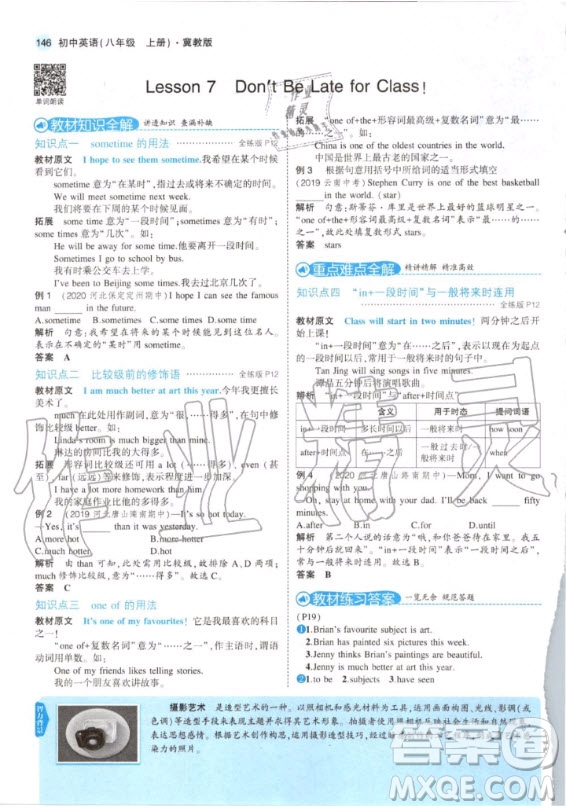 146 初中英语(八年级 上册)·冀教版
单词朗读
Lesson 7 Don't Be Late for Class!
教材知识全解 讲透知识 查漏补缺
知识点一 sometime 的用法 全练版 P12
教材原文 I hope to see them sometime.我希望在某个时候
看到它们。
sometime 意为“在某时”,指过去或将来不确定的时间。
We will have a party sometime next week.
我们将要在下周的某个时候见面。
拓展 some time 意为“一段时间”;sometimes 意为“有时”;
some times 意为“几次”。如:
He will be away for some time.
他将会离开一段时间。
Sometimes I go to school by bus.
我有时乘公交车去上学。
I've been to Beijing some times.我去过北京几次。
例 1 (2020 河北保定定州期中) I hope I can see the famous
man ____ in the future.
A.sometime B.sometimes C.some time D.some times
解析 句意:我希望在将来的某个时候我能见到这个名人。
表示在不确定的“某时”用 sometime。
答案 A
知识点二 比较级前的修饰语 全练版 P12
教材原文 I am much better at art this year.今年我更擅长
美术了。
much 在此处用作副词,意为“很,……得多”,在句中
修饰比较级 better。如:
Linda's room is much bigger than mine.
琳达的房间比我的大得多。
拓展 形容词比较级还可用 a lot (……得多)、even (甚至)、
far (远远)等来修饰,表示程度。如:
My home is a lot farther than his.
例 2 (2019 河北唐山期中)—It's so hot today.
—Yes, it's ____ than it was yesterday.
A.more hot B.more hotter
C.much hotter D.much hot
故排除 A、D 两项;
答案 C
知识点三 one of 的用法
教材原文 It's one of my favourites! 它是我最喜欢的科目
之一!
“one of+复数名词”意为“……之一”,作主语时,谓语
动词用单数。如:
One of my friends likes telling stories.
我的一个朋友喜欢讲故事。
拓展 “one of+the+形容词最高级+复数名词”意为“最……
的……之一”。如:
China is one of the oldest countries in the world.
中国是世界上最古老的国家之一。
例 3 根据句意用括号中所给词的适当形式填空
(2019 云南中考) Stephen Curry is one of the best basketball
____ in the world. (star)
解析 句意:斯蒂芬·库里是世界上最好的篮球明星之一。
“one of+the+形容词最高级+复数名词”表示“最……的……
之一”。
答案 stars
重点难点全解 精讲精解 精准高效
知识点四 “in+一段时间”与一般将来时连用
全练版 P12
教材原文 Class will start in two minutes! 两分钟之后开
始上课!
“in+一段时间”意为“在……之后”,表示以现在为起点
的一段时间之后,常用于一般将来时的句子中。
Tan Jing will sing songs in five minutes.
谭晶五分钟之后将演唱歌曲。
辨析 “in+一段时间”与“after+时间点”
含义 用于时态 提问词语
in+一段时间 多长时间以后 一般将来时 how soon
after+时间点 在……之后 一般过去时/一般将来时 when
例 4 (2020 河北唐山路南期中)—Mom, I want to go shopping.
—Oh, stay at home with your dad. I'll be back ____ fifty
minutes.
A.after B.in C.for D.until
解析 第二个人说话的意思为“哦,和你爸爸待在家里。我五
十分钟后就回来。”“in+一段时间”意为“在……之后”,
常与一般将来时连用。
答案 B
教材练习答案 一览无余 规范答题
(P19)
❶1.Brian's favourite subject is art.
2.Brian has painted six pictures this week.
3.Jenny thinks Brian's paintings are beautiful.
4.Jenny is much better at art this year.
❷1.to be 2.subjects 3.have seen
智力背景
摄影艺术 是造型艺术的一种。以照相机和感光材料为工具,运用画面构图、光线、影调(或
色调)等造型手段来表现主题并求得其艺术形象。拍摄者使用照相机反映社会生活和自然现象,
表达思想感情。根据艺术创作构思,运用摄影造型技巧,经过暗房制作的工艺处理,制成有艺术感
染力的照片。
作业精灵
答案圈
MXQE.COM